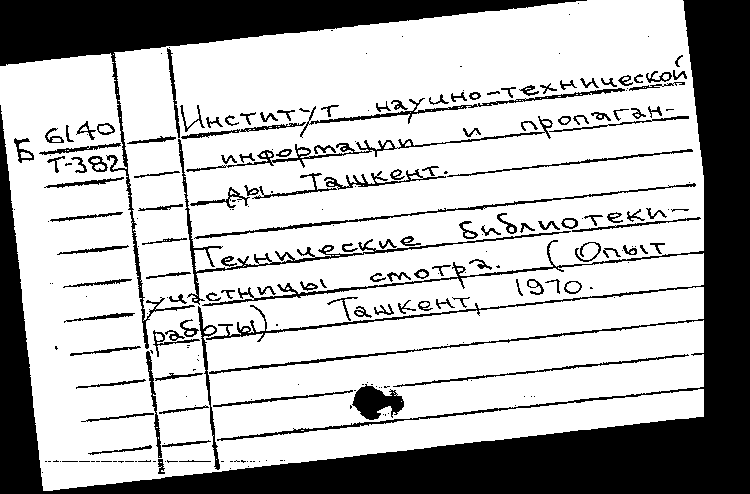 Б 6140
Т-382
Институт научно-технической
информации и пропаган-
ды. Ташкент.
Технические библиотеки-
участницы смотра. (Опыт
работы). Ташкент, 1970.